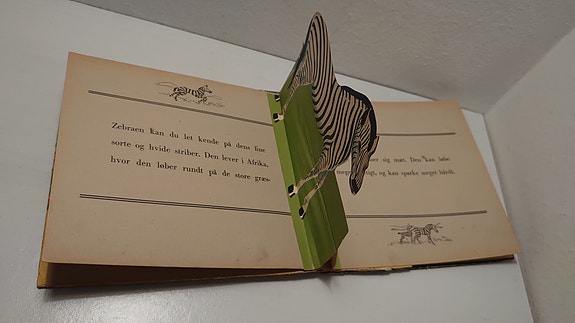 Zebraen kan du let kende på dens fine
sorte og hvide striber. Den lever i Afrika,
hvor den løber rundt på de store græs-
sig mæt. Den kan løbe
og kan sparke meget hårdt.